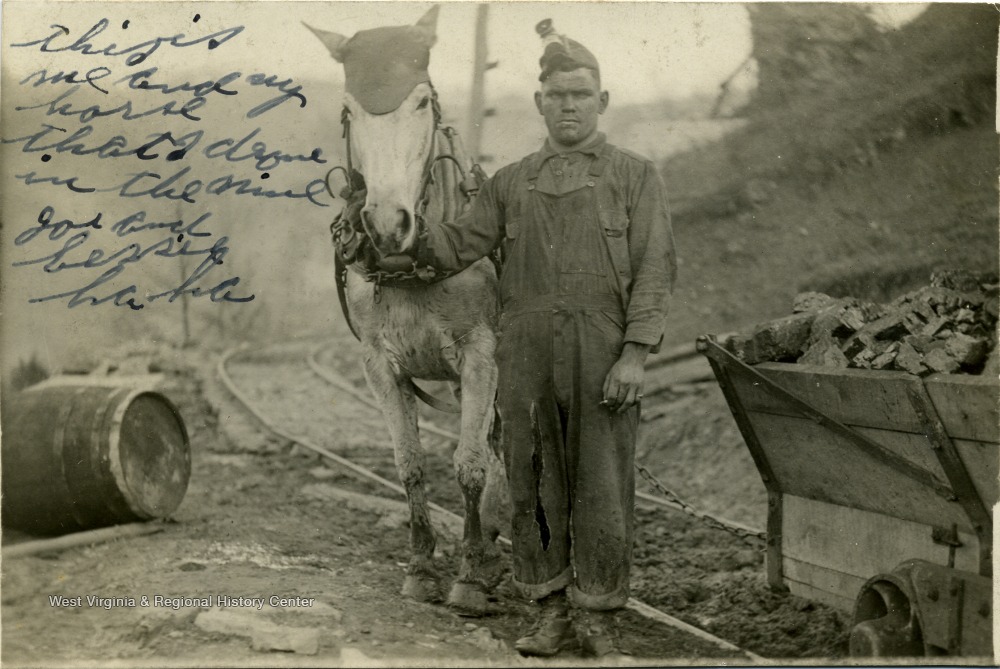 this is
me and my
horse
that I drove
in the mine
Joe and
bessie
ha ha
West Virginia & Regional History Center